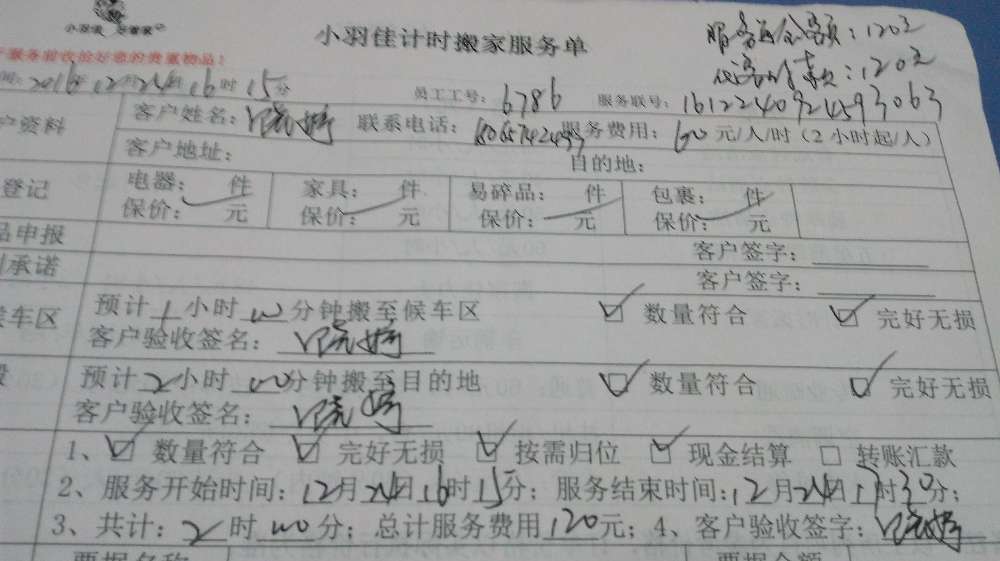 小羽佳计时搬家服务单
服务总金额:120元
服务验收前好您的贵重物品!
2016年12月24日16时15分
员工工号:6786 服务联号:1612240924593063
户资料 客户姓名: 联系电话: 服务费用:60元/人/时(2小时起/人)
客户地址: 目的地:
登记 电器: 件 家具: 件 易碎品: 件 包裹: 件
保价: 元 保价: 元 保价: 元 保价: 元
品申报 客户签字:
承诺 客户签字:
车区 预计1小时00分钟搬至候车区 数量符合 完好无损
客户验收签名:
预计2小时00分钟搬至目的地 数量符合 完好无损
客户验收签名:
1、 数量符合 完好无损 按需归位 现金结算 转账汇款
2、服务开始时间:12月24日16时15分;服务结束时间:12月24日17时30分;
3、共计:2时00分;总计服务费用120元;4、客户验收签字:
票据名称 票据金额